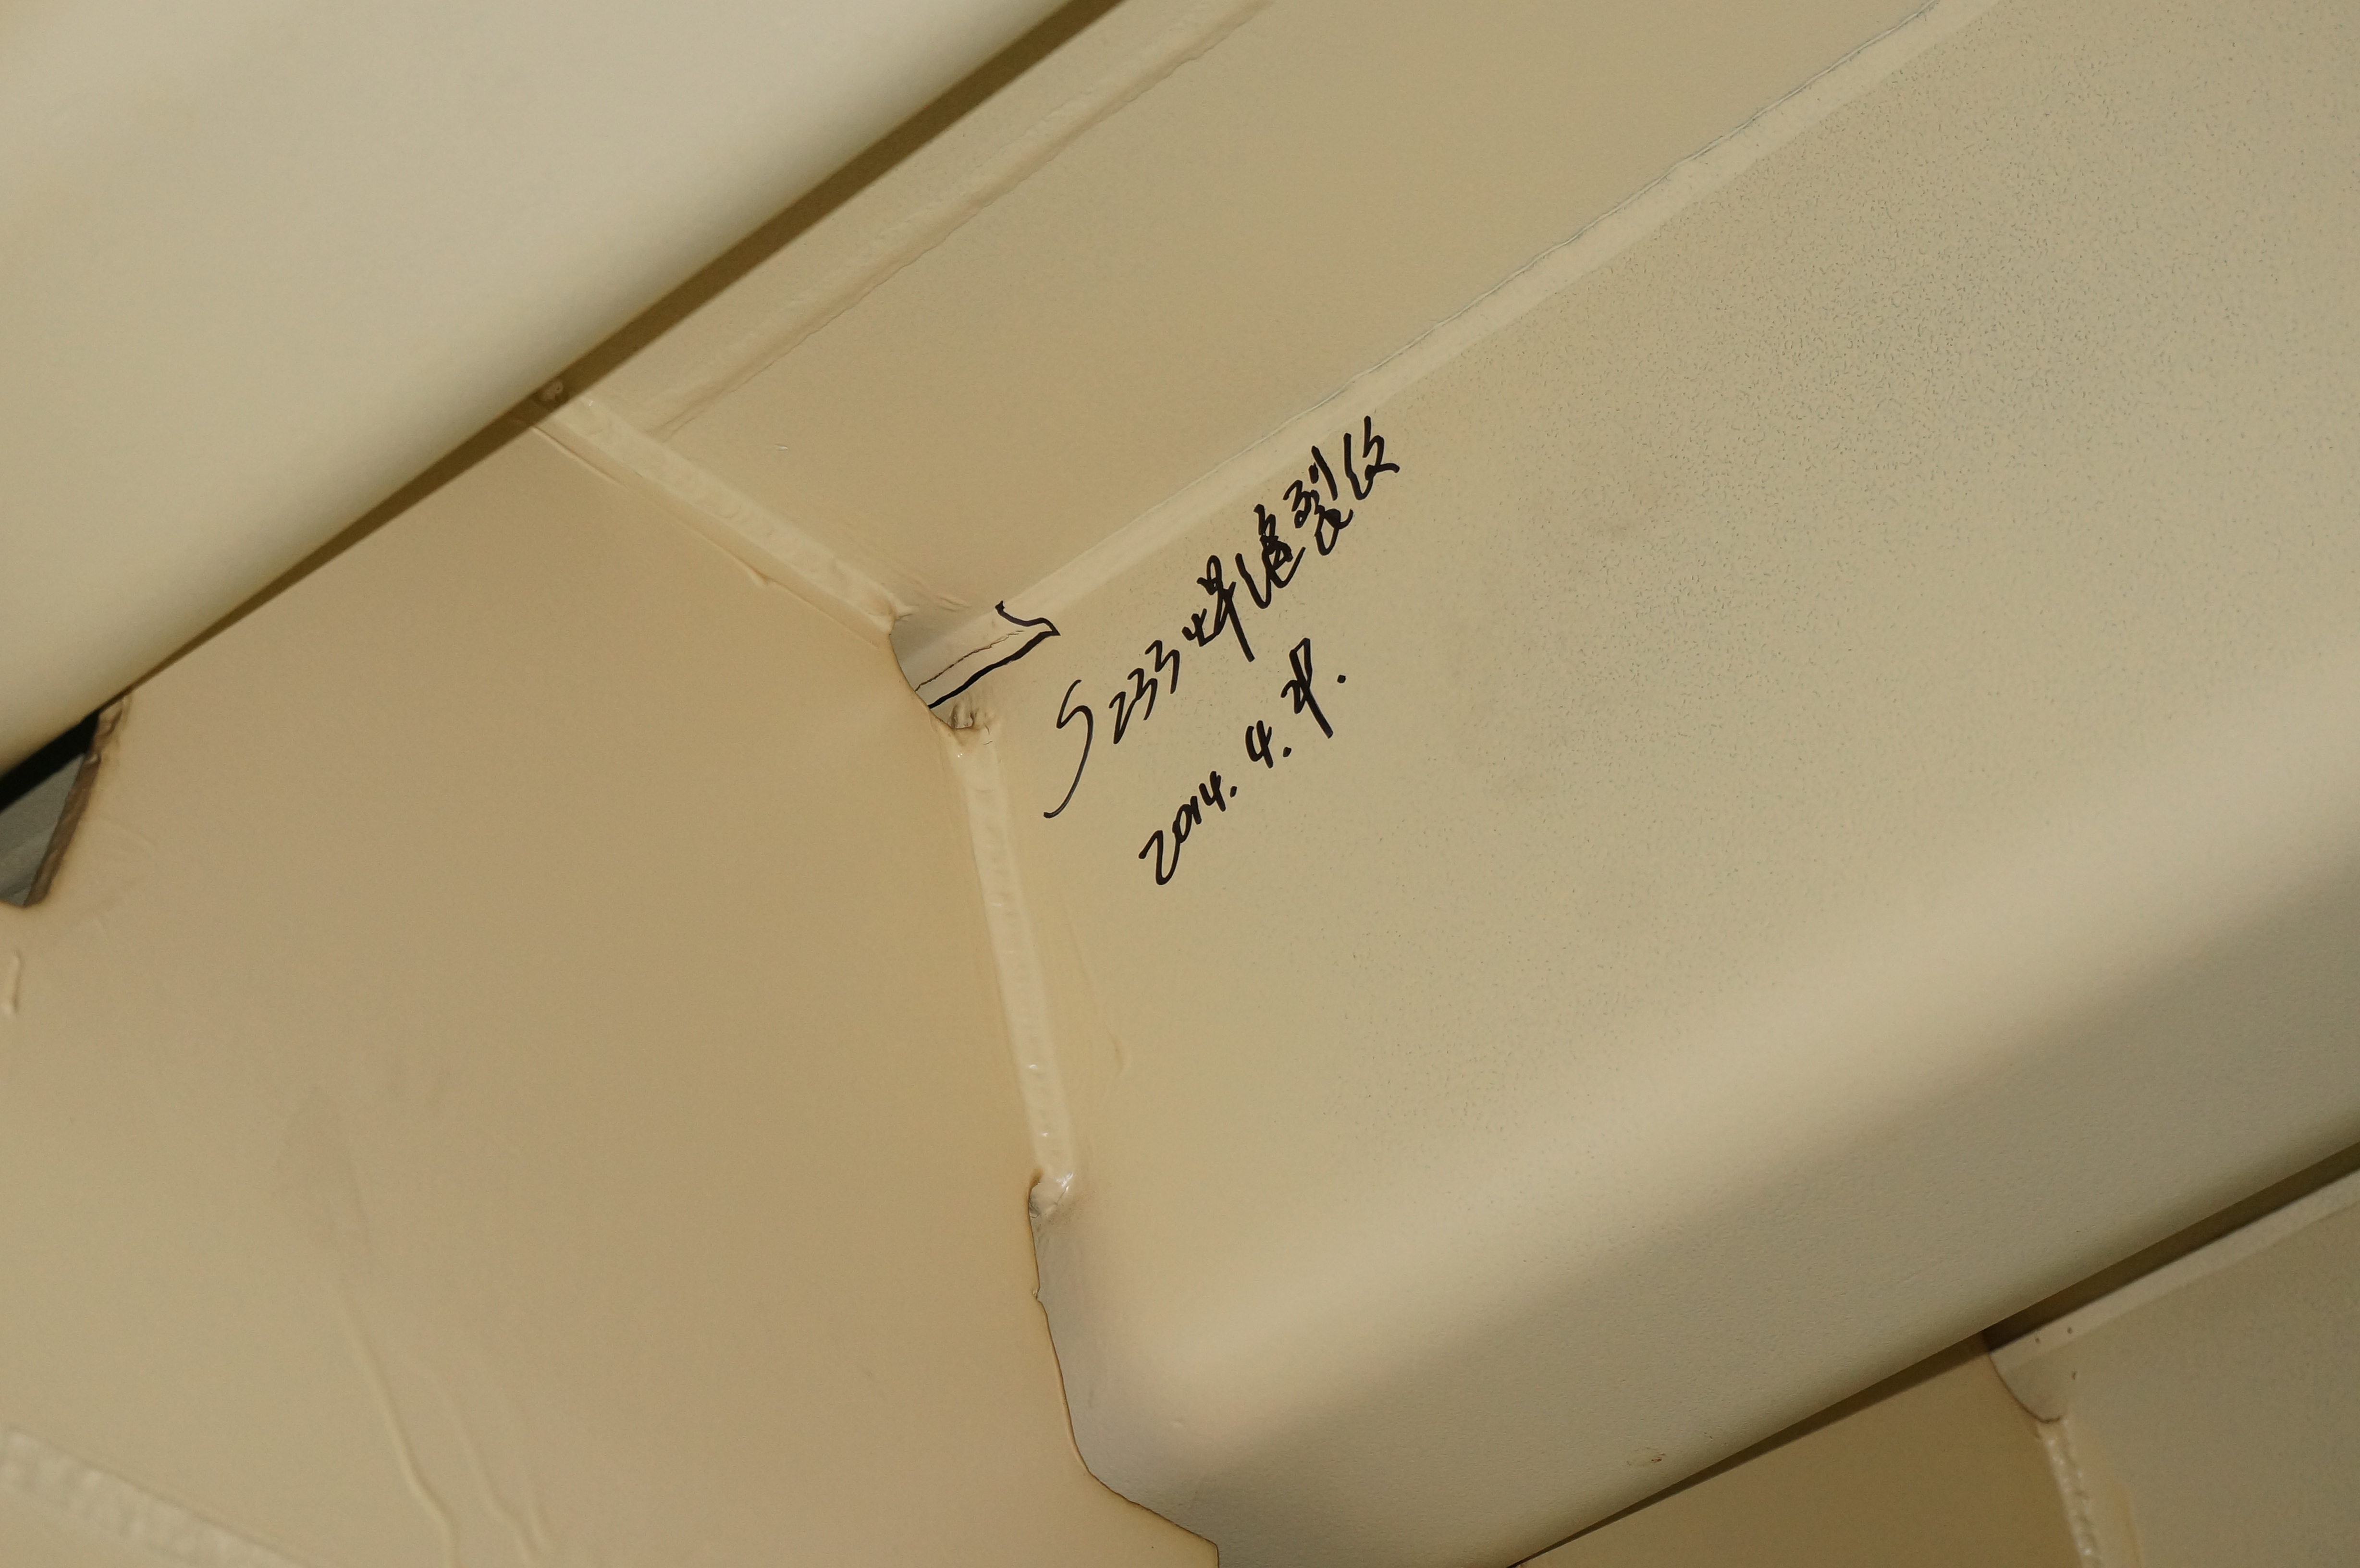 S233焊缝裂纹
2014.4.